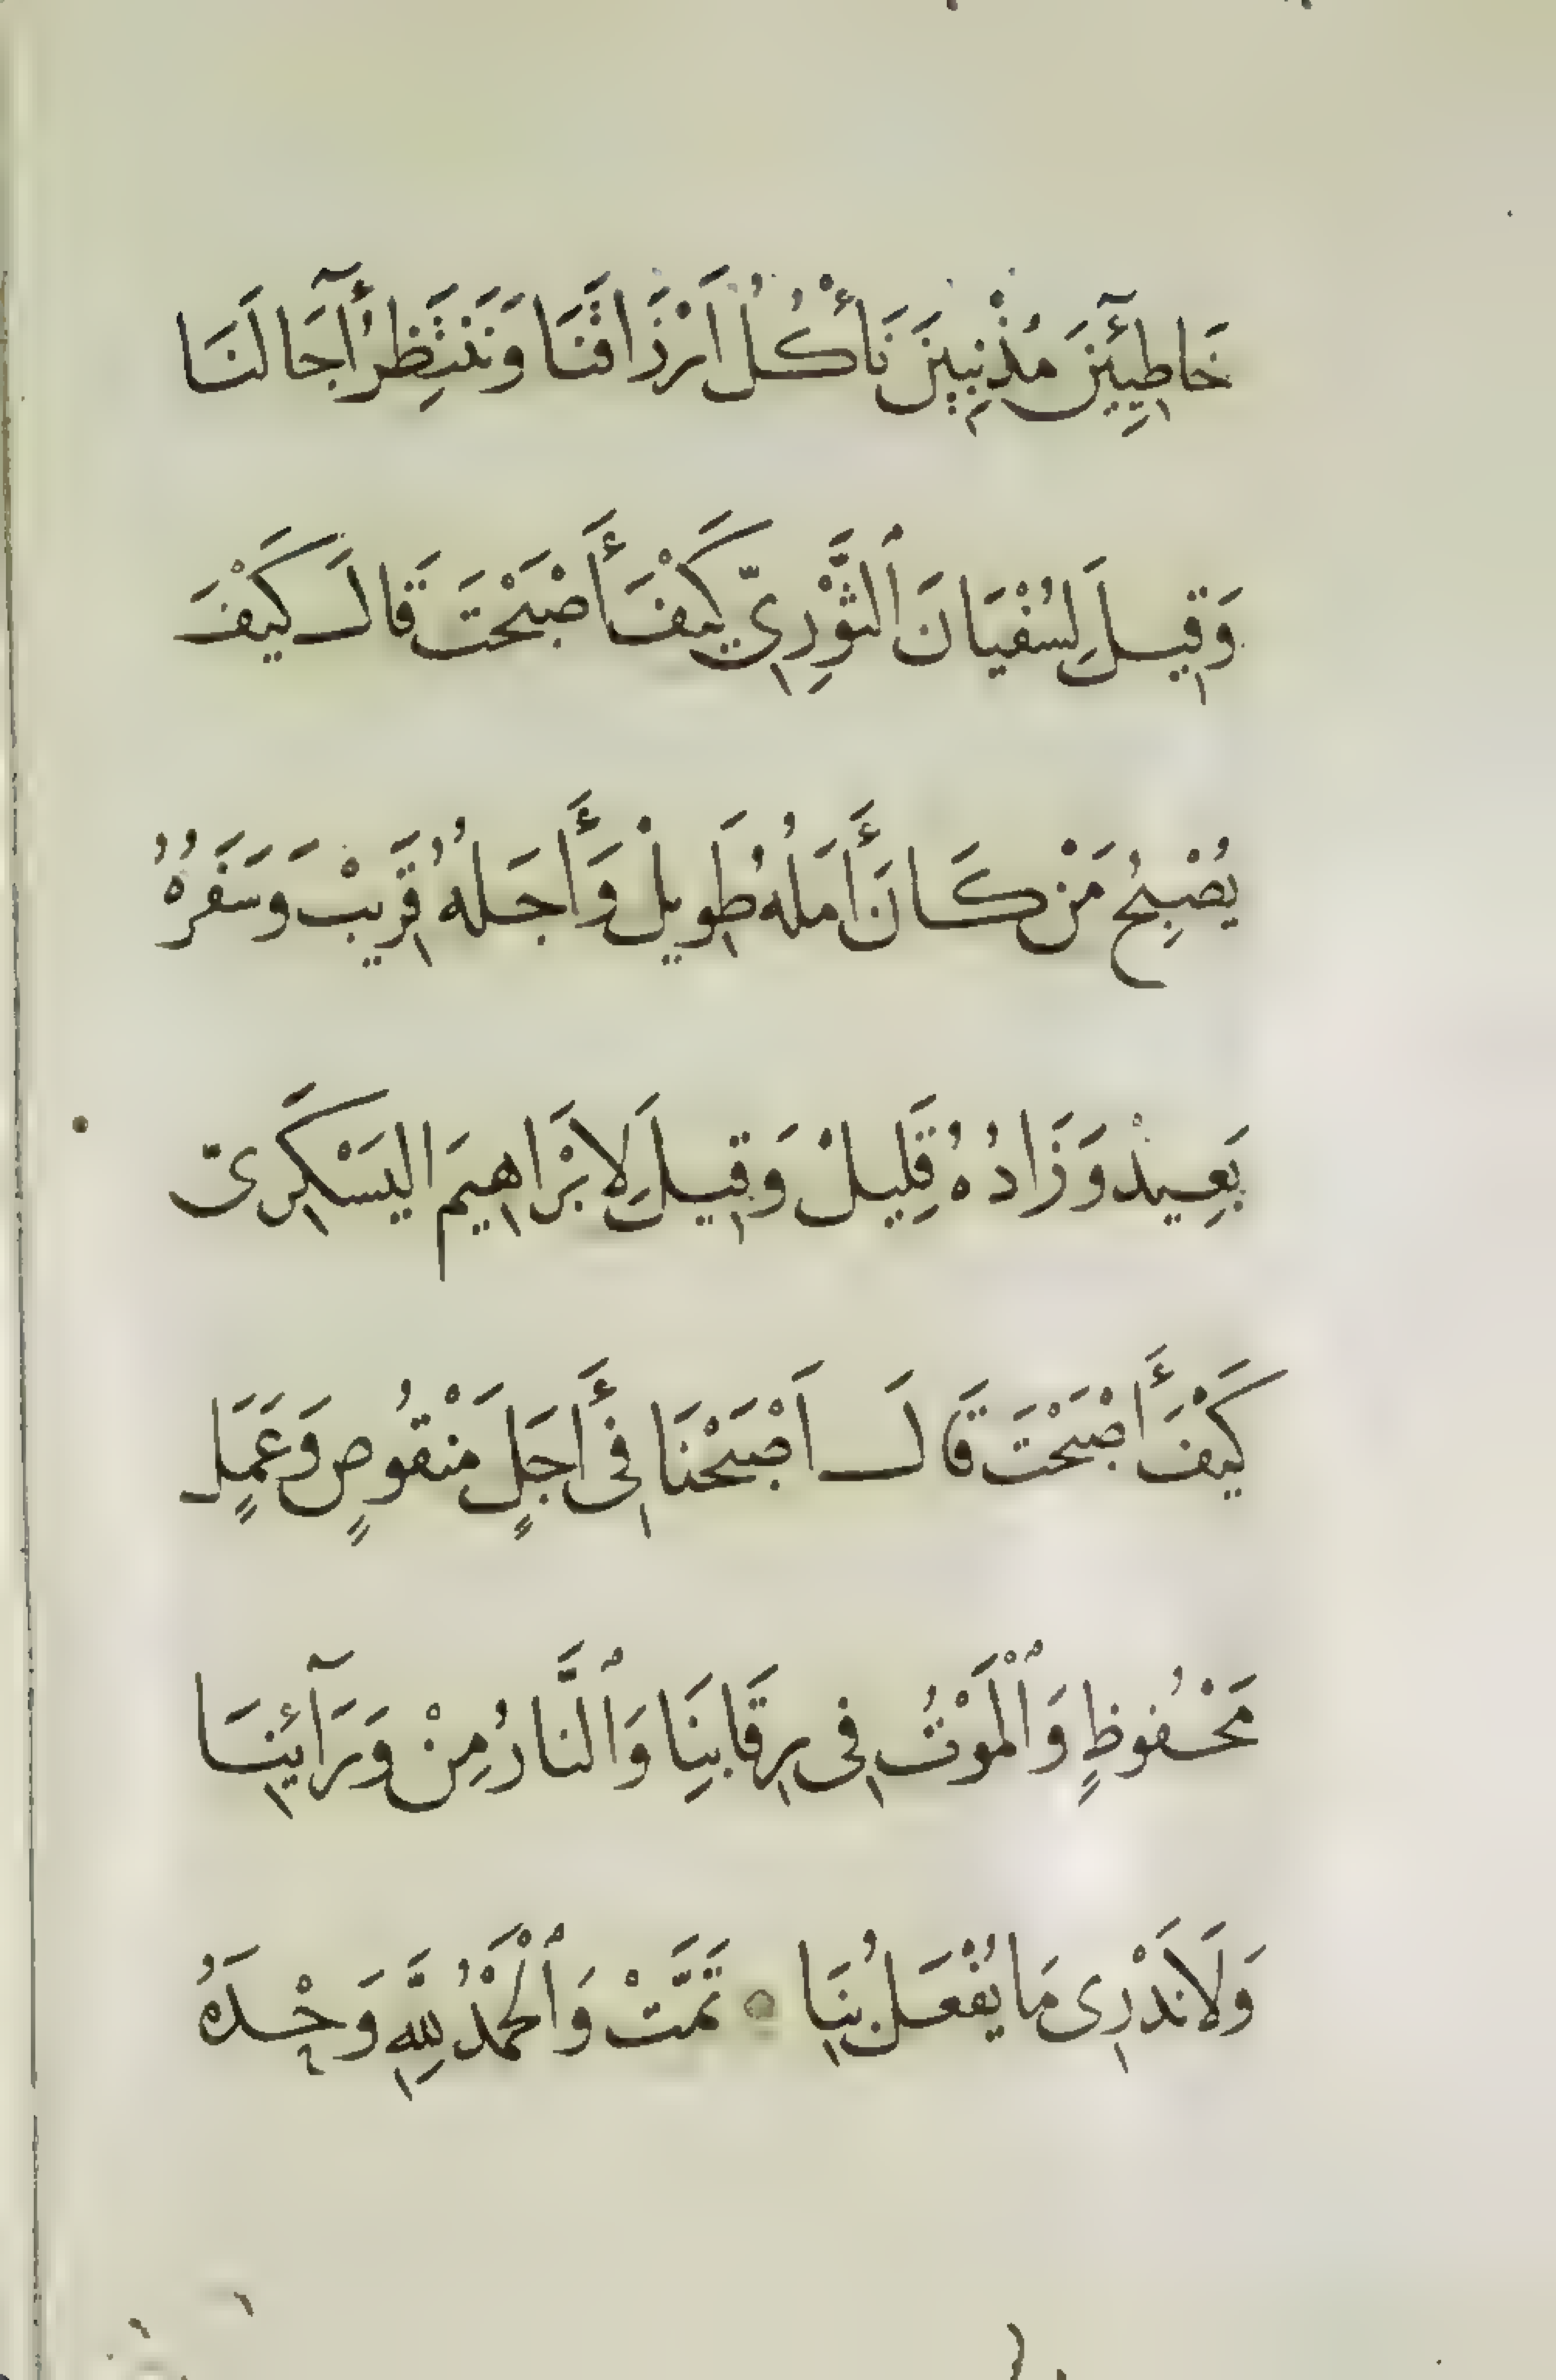 خَاطِئِينَ مُذْنِبِينَ نَأْكُلُ اَرْزَاقَنَا وَنَنْتَظِرُ أٓجَالَنَا
وَقِيلَ لِسُفْيَانَ ٱلثَّوْرِيِّ كَيْفَ أَصْبَحْتَ قَالَ كَيْفَ
يُصْبِحُ مَنْ كَانَ أَمَلُهُ طَوِيلْ وَأَجَلُهُ قَرِيبْ وَسَفَرُهُ
بَعِيدْ وَزَادُهُ قَلِيلْ وَقِيلَ لِابْرَاهِيمَ اليَسْكَرِىّ
كَيْفَ أَصْبَحْتَ قَالَ اَصْبَحْنَا فِى أَجَلٍ مَنْقُوصٍ وَعَمَلٍ
مَحْفُوظٍ وَٱلْمَوْتُ فِى رِقَابِنَا وَٱلنَّارُ مِنْ وَرَآئِنَا
وَلَا نَدْرِى مَا يُفْعَلُ بِنَا ۞ تَمَّتْ وَٱلْحَمْدُ لِلَّهِ وَحْدَهُ